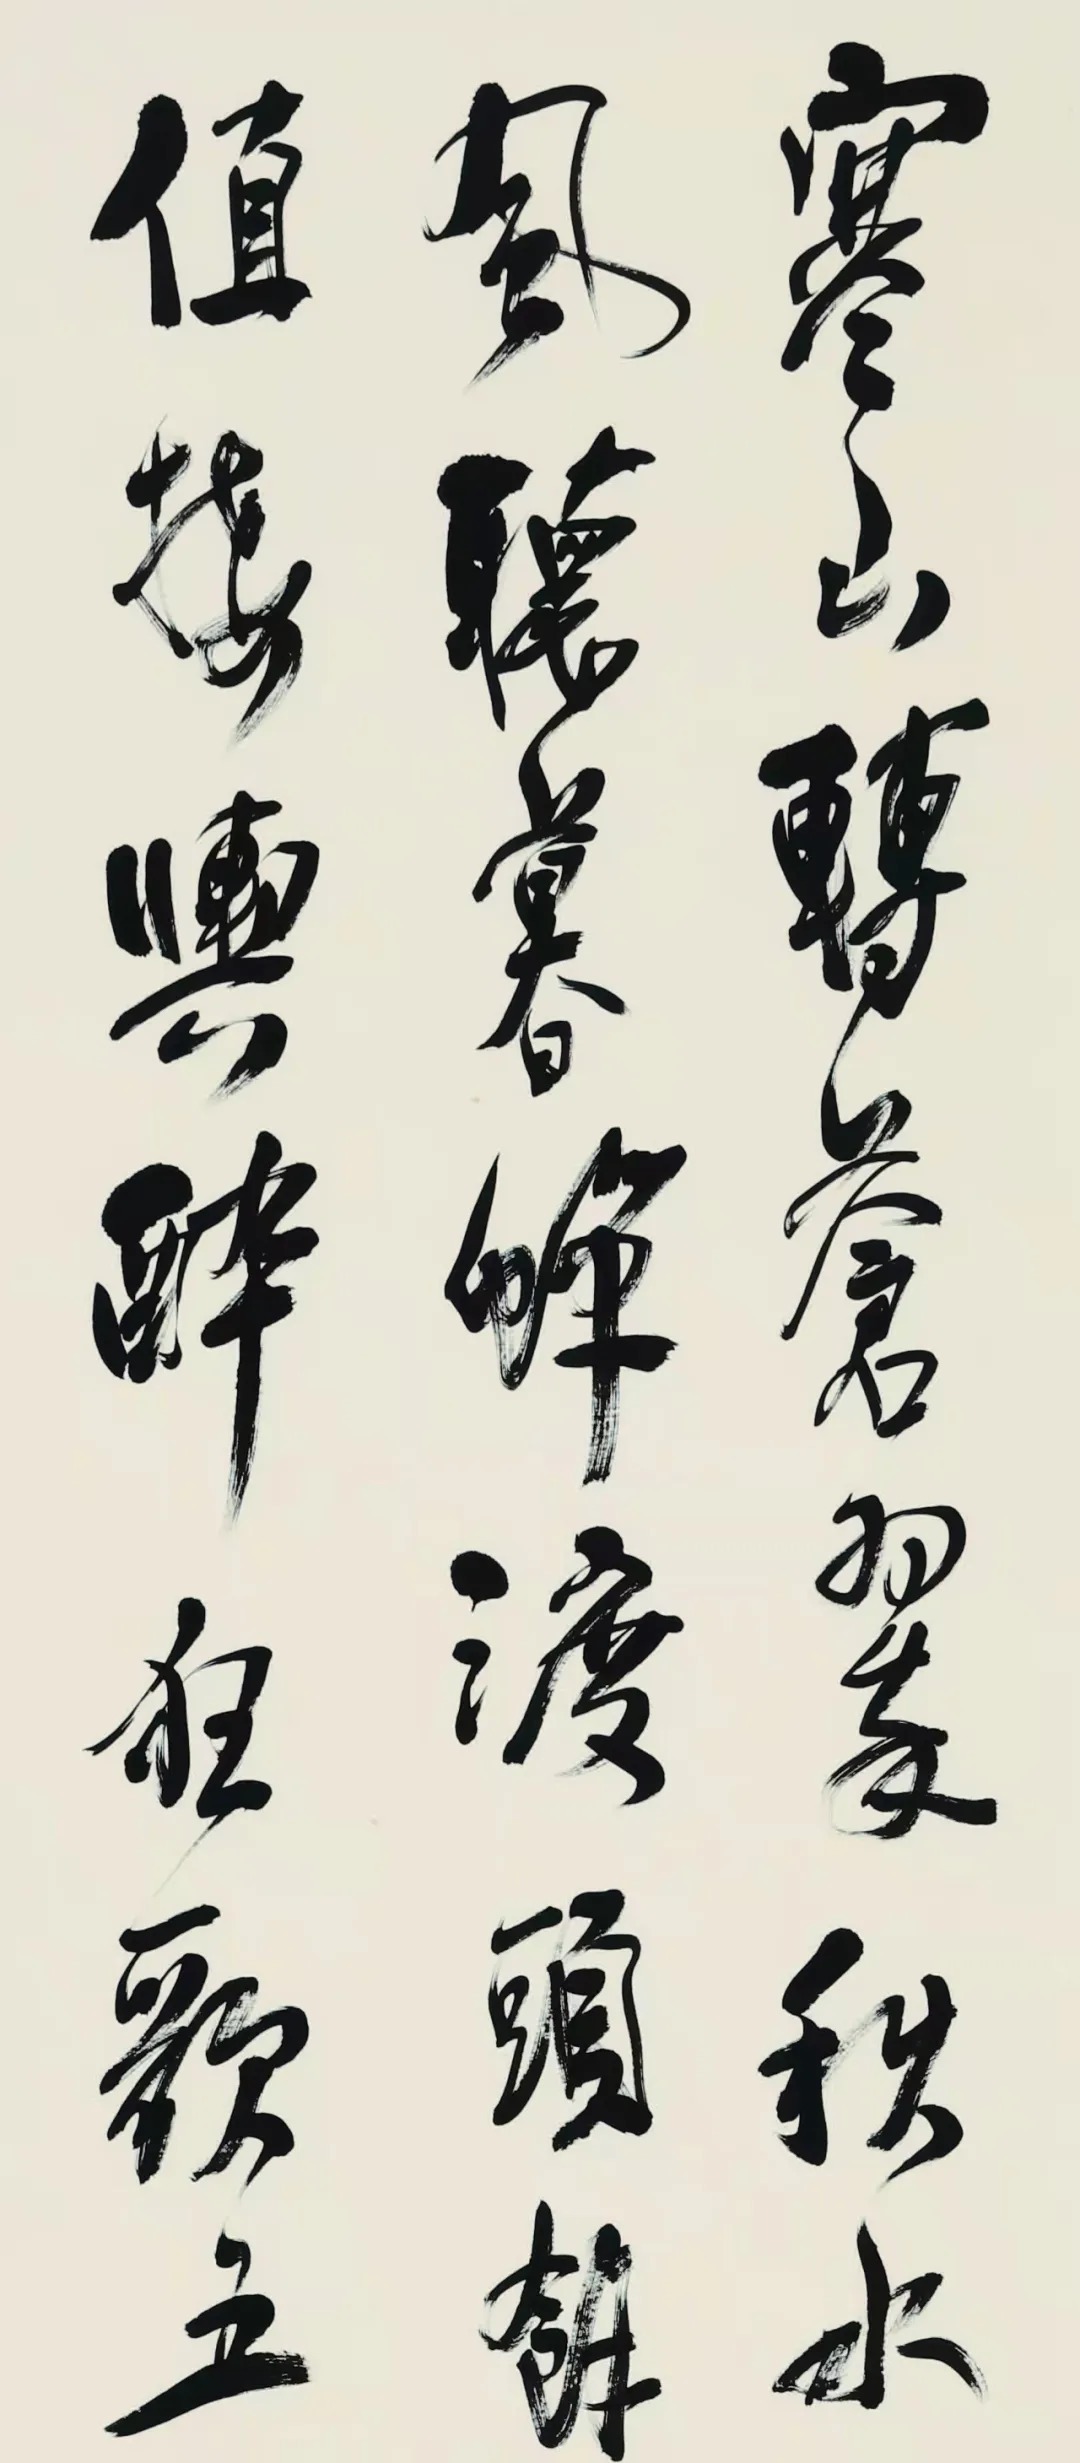 寒山轉蒼翠秋水
風聽暮蟬渡頭餘
值接輿醉狂歌五